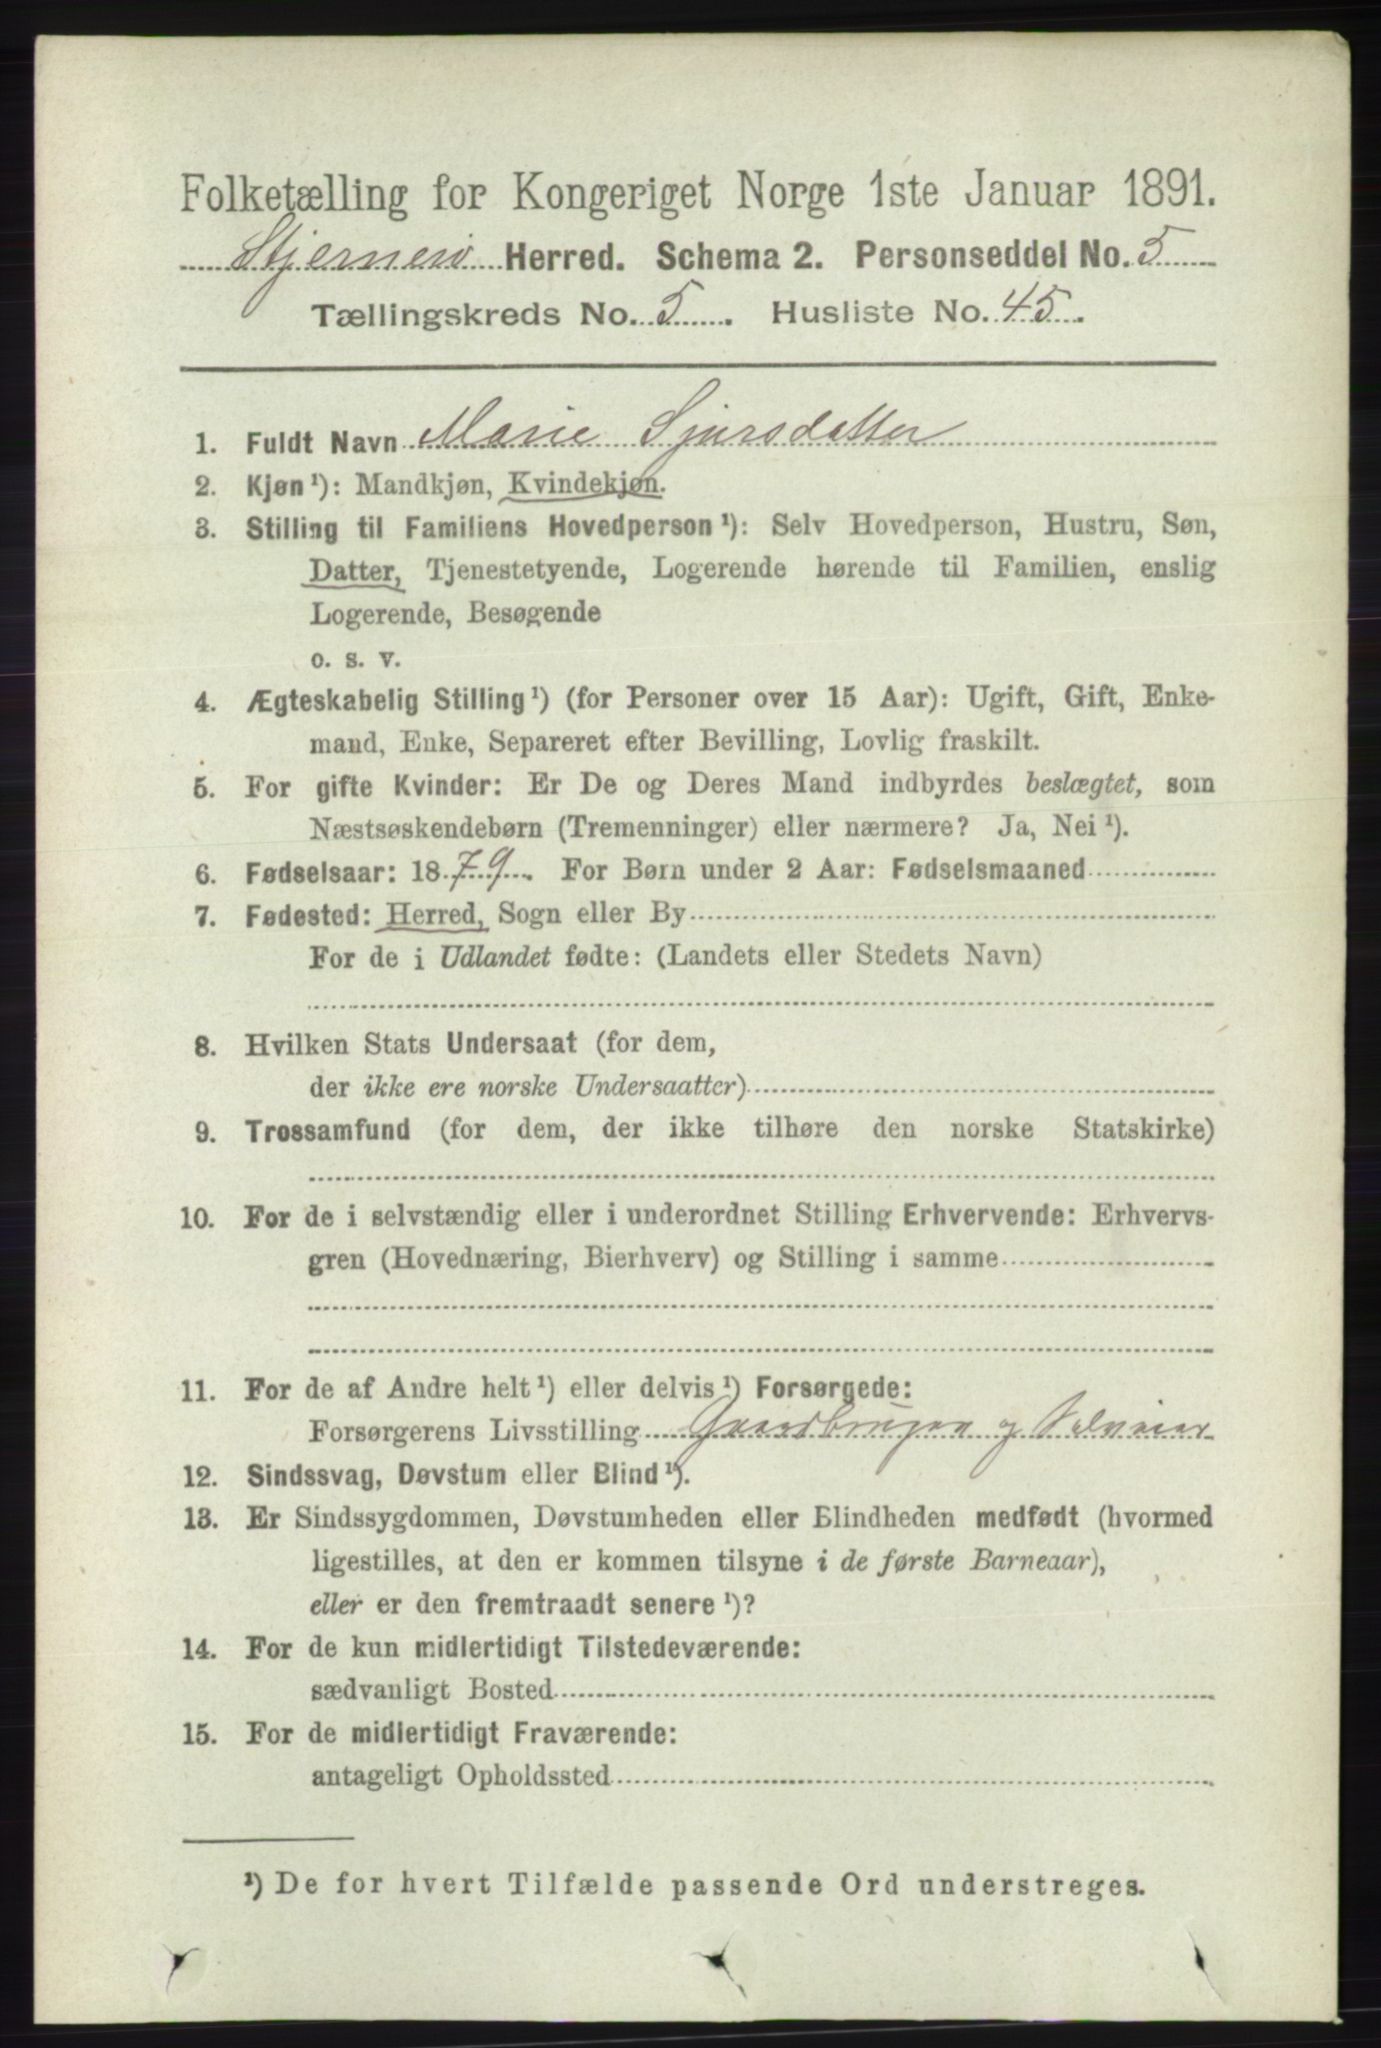 Folketælling for Kongeriget Norge 1ste Januar 1891.
Stjernerö Herred. Schema 2. Personseddel No. 5
Tællingskreds No. 5. Husliste No. 45.
1. Fuldt Navn Marie Sjursdatter
2. Kjøn¹): Mandkjøn, Kvindekjøn.
3. Stilling til Familiens Hovedperson¹): Selv Hovedperson, Hustru, Søn,
Datter, Tjenestetyende, Logerende hørende til Familien, enslig
Logerende, Besøgende
o. s. v.
4. Ægteskabelig Stilling¹) (for Personer over 15 Aar): Ugift, Gift, Enke-
mand, Enke, Separeret efter Bevilling, Lovlig fraskilt.
5. For gifte Kvinder: Er De og Deres Mand indbyrdes beslægtet, som
Næstsøskendebørn (Tremenninger) eller nærmere? Ja, Nei¹).
6. Fødselsaar: 1879. For Børn under 2 Aar: Fødselsmaaned
7. Fødested: Herred, Sogn eller By
For de i Udlandet fødte: (Landets eller Stedets Navn)
8. Hvilken Stats Undersaat (for dem,
der ikke ere norske Undersaatter)
9. Trossamfund (for dem, der ikke tilhøre den norske Statskirke)
10. For de i selvstændig eller i underordnet Stilling Erhvervende: Erhvervs-
gren (Hovednæring, Bierhverv) og Stilling i samme
11. For de af Andre helt¹) eller delvis¹) Forsørgede:
Forsørgerens Livsstilling Gaardbruger og Selveier
12. Sindssvag, Døvstum eller Blind¹).
13. Er Sindssygdommen, Døvstumheden eller Blindheden medfødt (hvormed
ligestilles, at den er kommen tilsyne i de første Barneaar),
eller er den fremtraadt senere¹)?
14. For de kun midlertidigt Tilstedeværende:
sædvanligt Bosted
15. For de midlertidigt Fraværende:
antageligt Opholdssted
¹) De for hvert Tilfælde passende Ord understreges.